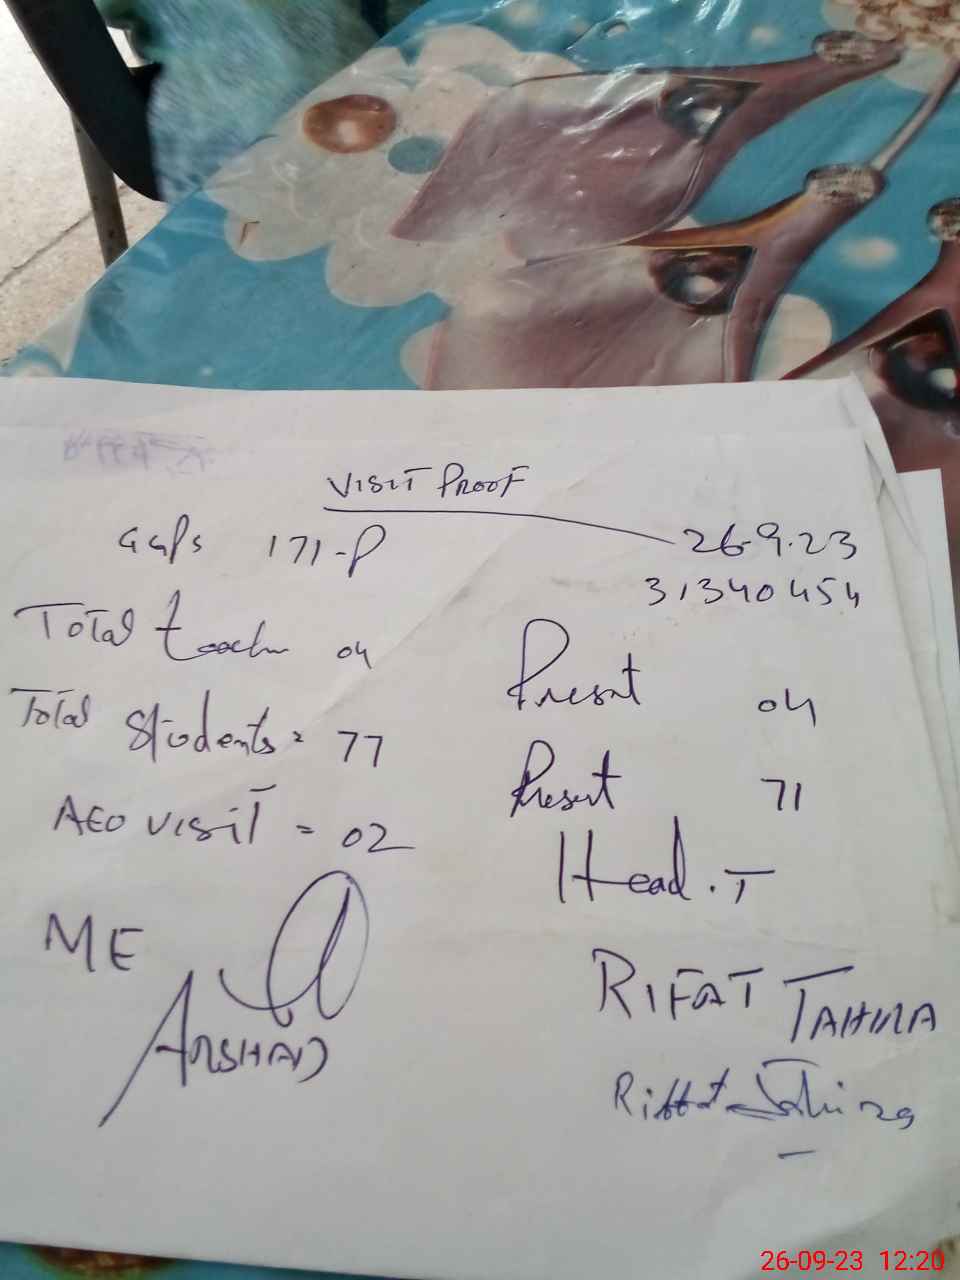 VISIT PROOF
GGPS 171-P 26-9.23
31340454
Total teacher 04 Present 04
Total Students = 77 Present 71
AEO VISIT = 02 Head.T
ME RIFAT TAHIRA
ARSHAD
Riffat Tahira
26-09-23 12:20